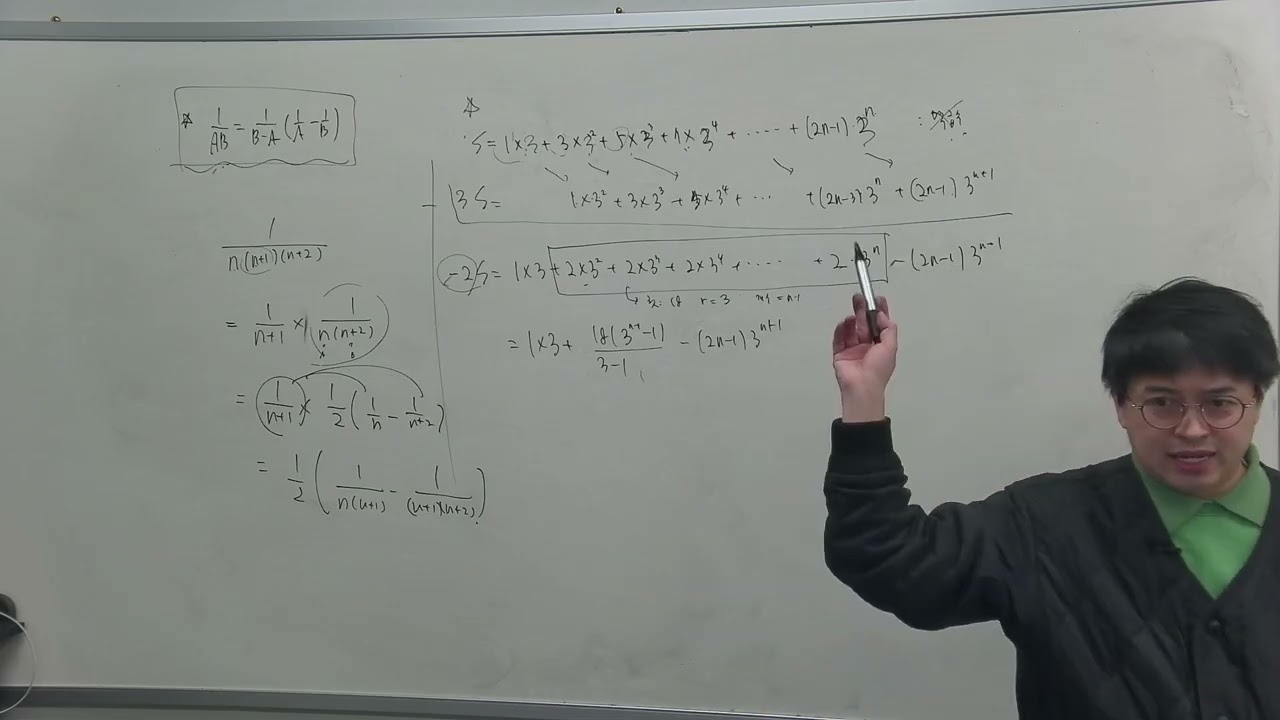 ☆ 1/AB = 1/(B-A) (1/A - 1/B)
1/(n(n+1)(n+2))
= 1/(n+1) × 1/(n(n+2))
= 1/(n+1) × 1/2 (1/n - 1/(n+2))
= 1/2 (1/(n(n+1)) - 1/((n+1)(n+2)))
☆
S = 1×3 + 3×3² + 5×3³ + 7×3⁴ + ⋯⋯ + (2n-1)·3ⁿ
3S = 1×3² + 3×3³ + 5×3⁴ + ⋯ + (2n-3)3ⁿ + (2n-1)3ⁿ⁺¹
-2S = 1×3 + 2×3² + 2×3³ + 2×3⁴ + ⋯⋯ + 2·3ⁿ - (2n-1)3ⁿ⁺¹
r=3 = n-1
= 1×3 + 18(3ⁿ⁻¹-1)/(3-1) - (2n-1)3ⁿ⁺¹